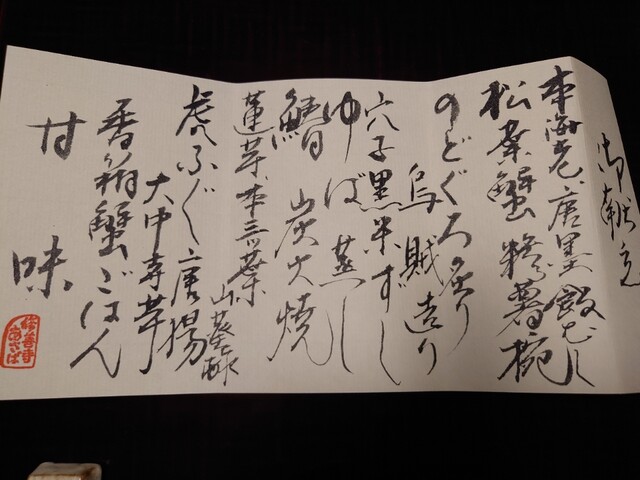 御献立
車海老、唐墨飯むし
松葉蟹 糝薯椀
のどぐろ炙り
烏賊造り
穴子黒米ずし
ゆば蒸し
鰆 炭火焼
蓮芋、三ッ葉
山葵酢
虎ふぐ唐揚
大中寺芋
香箱蟹ごはん
甘味